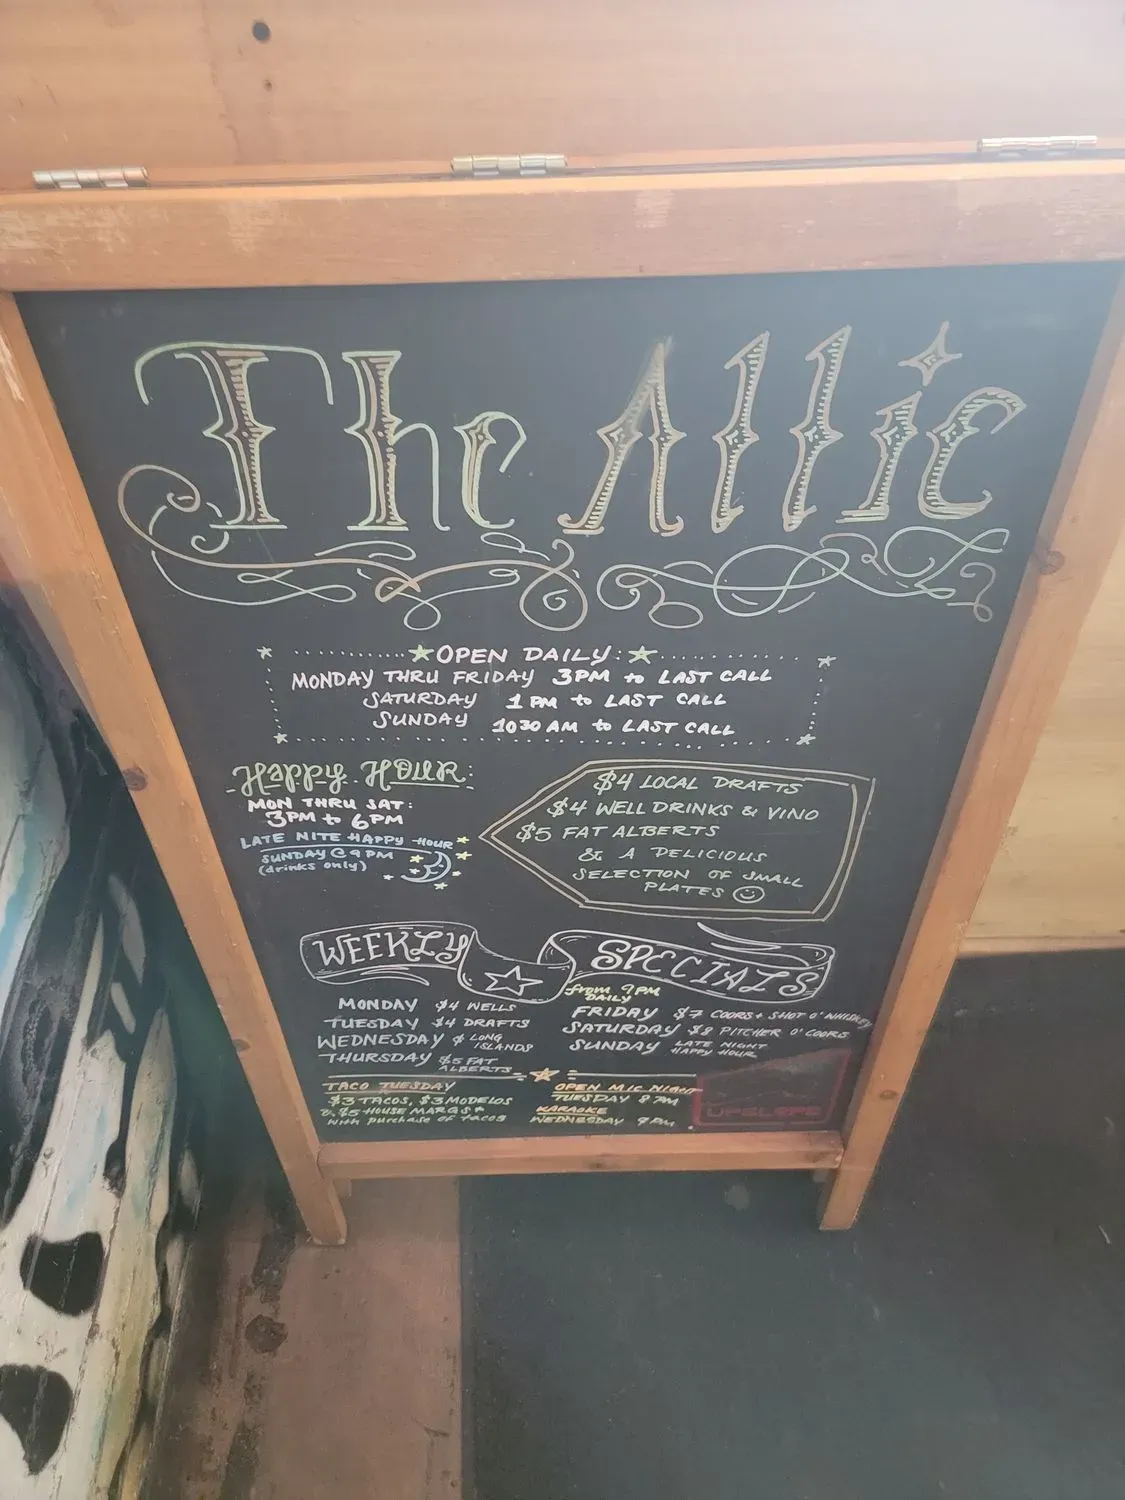 The Attic
OPEN DAILY:
MONDAY THRU FRIDAY 3PM to LAST CALL
SATURDAY 1 PM to LAST CALL
SUNDAY 1030 AM to LAST CALL
Happy Hour:
MON THRU SAT:
3PM to 6PM
LATE NITE HAPPY HOUR
SUNDAY @ 9 PM
(drinks only)
$4 LOCAL DRAFTS
$4 WELL DRINKS & VINO
$5 FAT ALBERTS
& A DELICIOUS
SELECTION OF SMALL
PLATES
WEEKLY SPECIALS
from 9PM
DAILY
MONDAY $4 WELLS
TUESDAY $4 DRAFTS
WEDNESDAY LONG
ISLANDS
THURSDAY $5 FAT
ALBERTS
FRIDAY $7 COORS + SHOT O' WHISKEY
SATURDAY $8 PITCHER O' COORS
SUNDAY LATE NIGHT
HAPPY HOUR
TACO TUESDAY
$3 TACOS, $3 MODELOS
$5 HOUSE MARGS *
with purchase of tacos
OPEN MIC NIGHT
TUESDAY 8 PM
KARAOKE
WEDNESDAY 9 PM
UPSLOPE